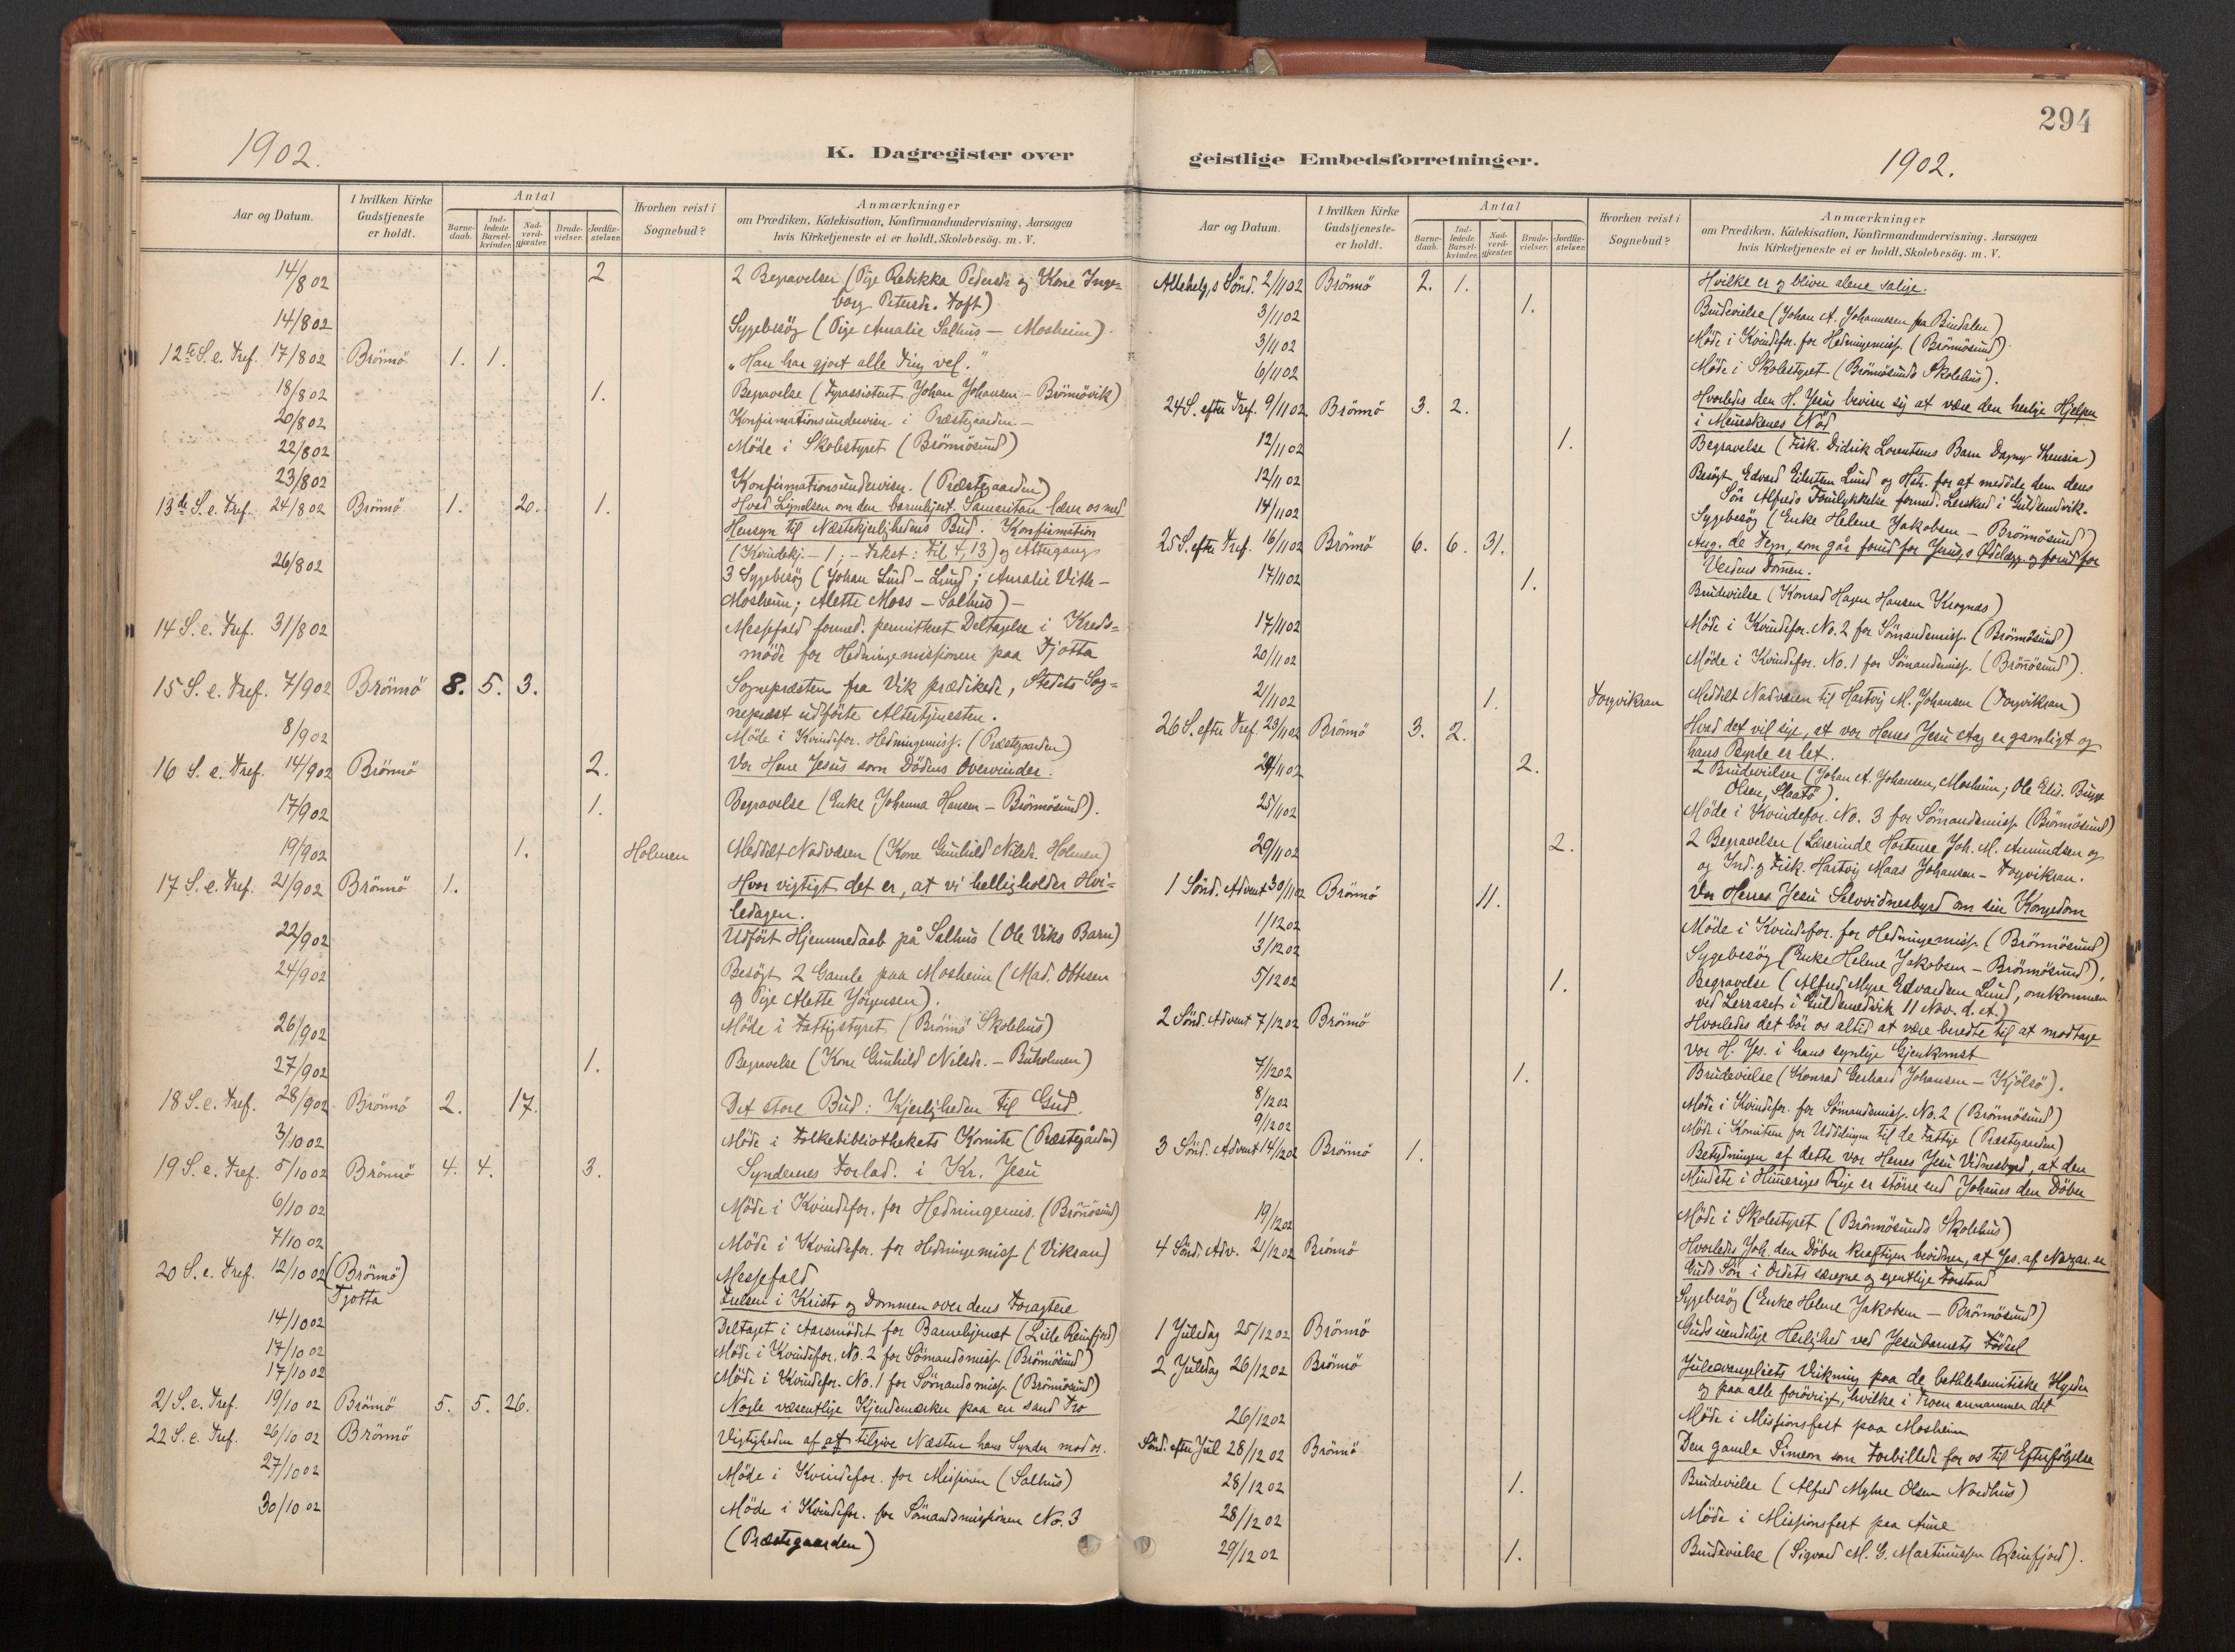 294
1902.
K. Dagregister over geistlige Embedsforretninger.
1902.
Aar og Datum.
I hvilken Kirke Gudstjeneste er holdt.
Antal
Barne-daab.
Ind-ledede Barsel-kvinder.
Nad-verd-gjæster.
Brude-vielser.
Jordfæ-stelser.
Hvorhen reist i Sognebud?
Anmærkninger
om Prædiken, Katekisation, Konfirmandundervisning, Aarsagen
hvis Kirketjeneste ei er holdt, Skolebesög. m. V.
14/8 02 2 2 Begravelser (Pige Rebikka Pedersdr. og Kone Inge=
borg Petersdr. Toft)
14/8 02 Sygebesög (Pige Amalie Salhus — Mosheim).
12te S. e. Tref. 17/8 02 Brönnö 1. 1. „Han har gjort alle Ting vel."
18/8 02 1. Begravelse (Fyrassistent Johan Johansen – Brönnövik)
20/8 02 Konfirmationsundervisn. i Præstegaarden.—
22/8 02 Möde i Skolestyret (Brönnösund)
23/8 02 Konfirmationsundervisn. (Præstegaarden)
13de S. e. Tref. 24/8 02 Brönnö 1. 20. 1. Hvad Lignelsen om den barmhjert. Samaritan lærer os med
Hensyn til Næstekjerlighedens Bud. Konfirmation
(Kvindekj. – 1; – Tekst: Fil. 4,13) og Altergang
26/8 02 3 Sygebesög (Johan Lund – Lund; Amalie Vith –
Mosheim; Alette Moss – Salhus) –
14 S. e. Tref. 31/8 02 Messefald formed. permitteret Deltagelse i Kreds=
möde for Hedningemissionen paa Tjotta
15 S. e. Tref. 7/9 02 Brönnö 8. 5. 3. Sognepræsten fra Vik prædikede, Stedets Sog=
nepræst udförte Altertjenesten.
8/9 02 Möde i Kvindefor. Hedningemiss. (Præstegaarden)
16 S. e. Tref. 14/9 02 Brönnö 2. Vor Herre Jesus som Dödens Overvinder.
17/9 02 1. Begravelse (Enke Johanna Hansen – Brönnösund).
19/9 02 1. Holmen Meddelt Nadveren (Kone Gunhild Nilsdr. Holmen)
17 S. e. Tref. 21/9 02 Brönnö 1. Hvor vigtigt det er, at vi helligholder Hvi=
ledagen.
22/9 02 Udfört Hjemmedaab på Salhus (Ole Viks Barn)
24/9 02 Besögt 2 Gamle paa Mosheim (Mad. Ottesen
og Pige Alette Jörgensen).
26/9 02 Möde i Fattigstyret (Brönnö Skolehus)
27/9 02 1. Begravelse (Kone Gunhild Nilsdr. – Buholmen)
18 S. e. Tref. 28/9 02 Brönnö 2. 17. Det store Bud: Kjerligheden til Gud.
3/10 02 Möde i Folkebibliothekets Komite (Præstegården)
19 S. e. Tref. 5/10 02 Brönnö 4. 4. 3. Syndernes Forlad. i Kr. Jesu
6/10 02 Möde i Kvindefor. for Hedningemis. (Brönnösund)
7/10 02 Möde i Kvindefor. for Hedningemiss. (Vikran)
20 S. e. Tref. 12/10 02 (Brönnö) Messefald
Tjotta Frelsen i Kristo og Dommen over dens Foragtere
14/10 02 Deltaget i Aarsmödet for Barnehjemmet (Lille Reinfjord)
17/10 02 Möde i Kvindefor. No. 2 for Sömandsmiss. (Brönnösund)
17/10 02 Möde i Kvindefor. No. 1 for Sömandsmiss. (Brönnösund)
21 S. e. Tref. 19/10 02 Brönnö 5. 5. 26. Nogle væsentlige Kjendemærker paa en sand Tro
22 S. e. Tref. 26/10 02 Brönnö Vigtigheden af at tilgive Næsten hans Synder mod os.
27/10 02 Möde i Kvindefor. for Missionen (Salhus)
30/10 02 Möde i Kvindefor. for Sömandsmissionen No. 3
(Præstegaarden)
Aar og Datum.
I hvilken Kirke Gudstjeneste- er holdt.
Antal
Barne-daab.
Ind-ledede Barsel-kvinder.
Nad-verd-gjæster.
Brude-vielser.
Jordfæ-stelser.
Hvorhen reist i Sognebud?
Anmærkninger
om Prædiken, Katekisation, Konfirmandundervisning, Aarsagen
hvis Kirketjeneste ei er holdt, Skolebesög. m. V.
Allehelg,s Sönd. 2/11 02 Brönnö 2. 1. Hvilke er og bliver alene salige.
3/11 02 1. Brudevielse (Johan A. Johannesen fra Bindalen)
3/11 02 Möde i Kvindefor. for Hedningemiss. (Brönnösund).
6/11 02 Möde i Skolestyret (Brönnösunds Skolehus).
24 S. efter Tref. 9/11 02 Brönnö 3. 2. Hvorledes den H. Jesus beviser sig at være den herlige Hjelper
i Menneskenes Nöd
12/11 02 1. Begravelse (Fisk. Didrik Lorentsens Barn Dagny Theresia)
12/11 02 Besögt Edvard Eilertsen Lund og Hstr. for at meddele dem deres
Sön Alfreds Forulykkelse formed. Lerskred i Guldsmedvik.
14/11 02 Sygebesög (Enke Helene Jakobsen – Brönnösund)
25 S. efter Tref. 16/11 02 Brönnö 6. 6. 31. Ang. de Tegn, som går forud for Jerus,s Ödelægg. og forud for
Verdens Dommen.
17/11 02 1. Brudevielse (Konrad Hagen Hansen Krognæs)
17/11 02 Möde i Kvindefor. No. 2 for Sömandsmiss. (Brönnösund)
20/11 02 Möde i Kvindefor. No. 1 for Sömandsmiss. (Brönnösund).
21/11 02 1. Torgvikran Meddelt Nadveren til Hartvig M. Johansen (Torgvikran)
26 S. efter Tref. 23/11 02 Brönnö 3. 2. Hvad det vil sige, at vor Herres Jesu Aag er gavnligt og
hans Byrde er let.
24/11 02 2. 2 Brudevielser (Johan A. Johansen, Mosheim; Ole
Olsen, Slaatö).
25/11 02 Möde i Kvindefor. No. 3 for Sömandsmiss. (Brönnösund)
29/11 02 2. 2 Begravelser (Lærerinde Hortense Joh. M. Amundsen og
og Ind. og Fisk. Hartvig Maas Johansen – Torgvikran.
1 Sönd. Advent 30/11 02 Brönnö 11. Vor Herres Jesu Selvvidnesbyrd om sin Kongedom
1/12 02 Möde i Kvindefor. for Hedningemiss. (Brönnösund)
3/12 02 Sygebesög (Enke Helene Jakobsen – Brönnösund).
5/12 02 1. Begravelse (Alfred Myre Edvardsen Lund, omkommen
ved Lerraset i Guldsmedvik 11 Nov. d. A.)
2 Sönd. Advent 7/12 02 Brönnö Hvorledes det bör os altid at være beredte til at modtage
vor H. Jes. i hans synlige Gjenkomst
7/12 02 1. Brudevielse (Konrad Gerhard Johansen – Kjölsö).
8/12 02 Möde i Kvindefor. for Sömandsmiss. No. 2 (Brönnösund)
9/12 02 Möde i Komiteen for Uddelingen til de Fattige (Præstegaarden)
3 Sönd. Advent 14/12 02 Brönnö 1. Betydningen af dette vor Herres Jesu Vidnesbyrd, at den
Mindste i Himmeriges Rige er större end Johannes den Döber
19/12 02 Möde i Skolestyret (Brönnösunds Skolehus)
4 Sönd. Adv. 21/12 02 Brönnö Hvorledes Joh. den Döber kraftigen bevidner, at Jes. af Nazar. er
Guds Sön i Ordets særegne og egentlige Forstand
Sygebesög (Enke Helene Jakobsen – Brönnösund)
1 Juledag 25/12 02 Brönnö Guds uendelige Herlighed ved Jesubarnets Födsel
2 Juledag 26/12 02 Brönnö Juleevangeliets Virkning paa de bethlehemitiske Hyrder
og paa alle forövrigt, hvilke i Troen annammer det
26/12 02 Möde i Missionsfest paa Mosheim
Sönd. efter Jul 28/12 02 Brönnö Den gamle Simeon som Forbillede for os til Efterfölgelse
28/12 02 1. Brudevielse (Alfred Myhre Olsen Nordhus)
28/12 02 Möde i Missionsfest paa Aune
29/12 02 1. Brudevielse (Sigvard M. G. Martinussen Reinfjord).